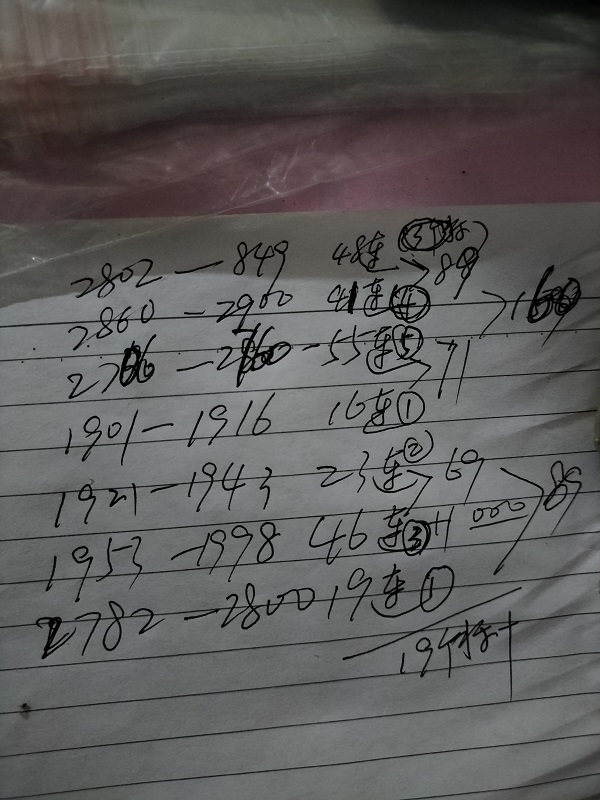 2802 — 849 48连 ③ 89
2860 — 2900 41连④ 160
2706 — 2760 — 55连⑤ 71
1901 — 1916 16连①
1921 — 1943 23连② 69
1953 — 1998 46连③ 89
2782 — 2800 19连①
19个